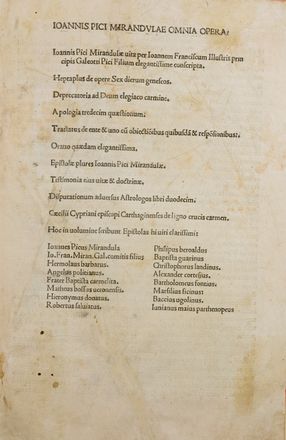 IOANNIS PICI MIRANDVLAE OMNIA OPERA:
Ioannis Pici Mirandulæ uita per Ioannem Franciscum Illustris prin
cipis Galeotti Pici Filium elegantissime conscripta.
Heptaplus de opere Sex dierum geneseos.
Deprecatoria ad Deum elegiaco carmine.
Apologia tredecim quæstionum.
Tractatus de ente & uno cū obiectiōibus quibusdā & respōsionibus.
Oratio quædam elegantissima.
Epistolæ plures Ioannis Pici Mirandulæ.
Testimonia eius uitæ & doctrinæ.
Disputationum aduersus Astrologos libri duodecim.
Cæcilii Cypriani episcopi Carthaginensis de ligno crucis carmen.
Hoc in uolumine scribunt Epistolas hi uiri clarissimi:
Ioannes Picus Mirandula
Io. Fran. Miran. Gal. comitis filius
Hermolaus barbarus.
Angelus politianus.
Frater Baptista carmelita.
Matheus bossus ueronensis.
Hieronymus donatus.
Robertus saluiatus.
Philipus beroaldus
Baptista guarinus
Christophorus landinus.
Alexander cortesius.
Bartholomeus fontius.
Marsilius ficinus:
Baccius ugolinus.
Iunianus maius parthenopeus